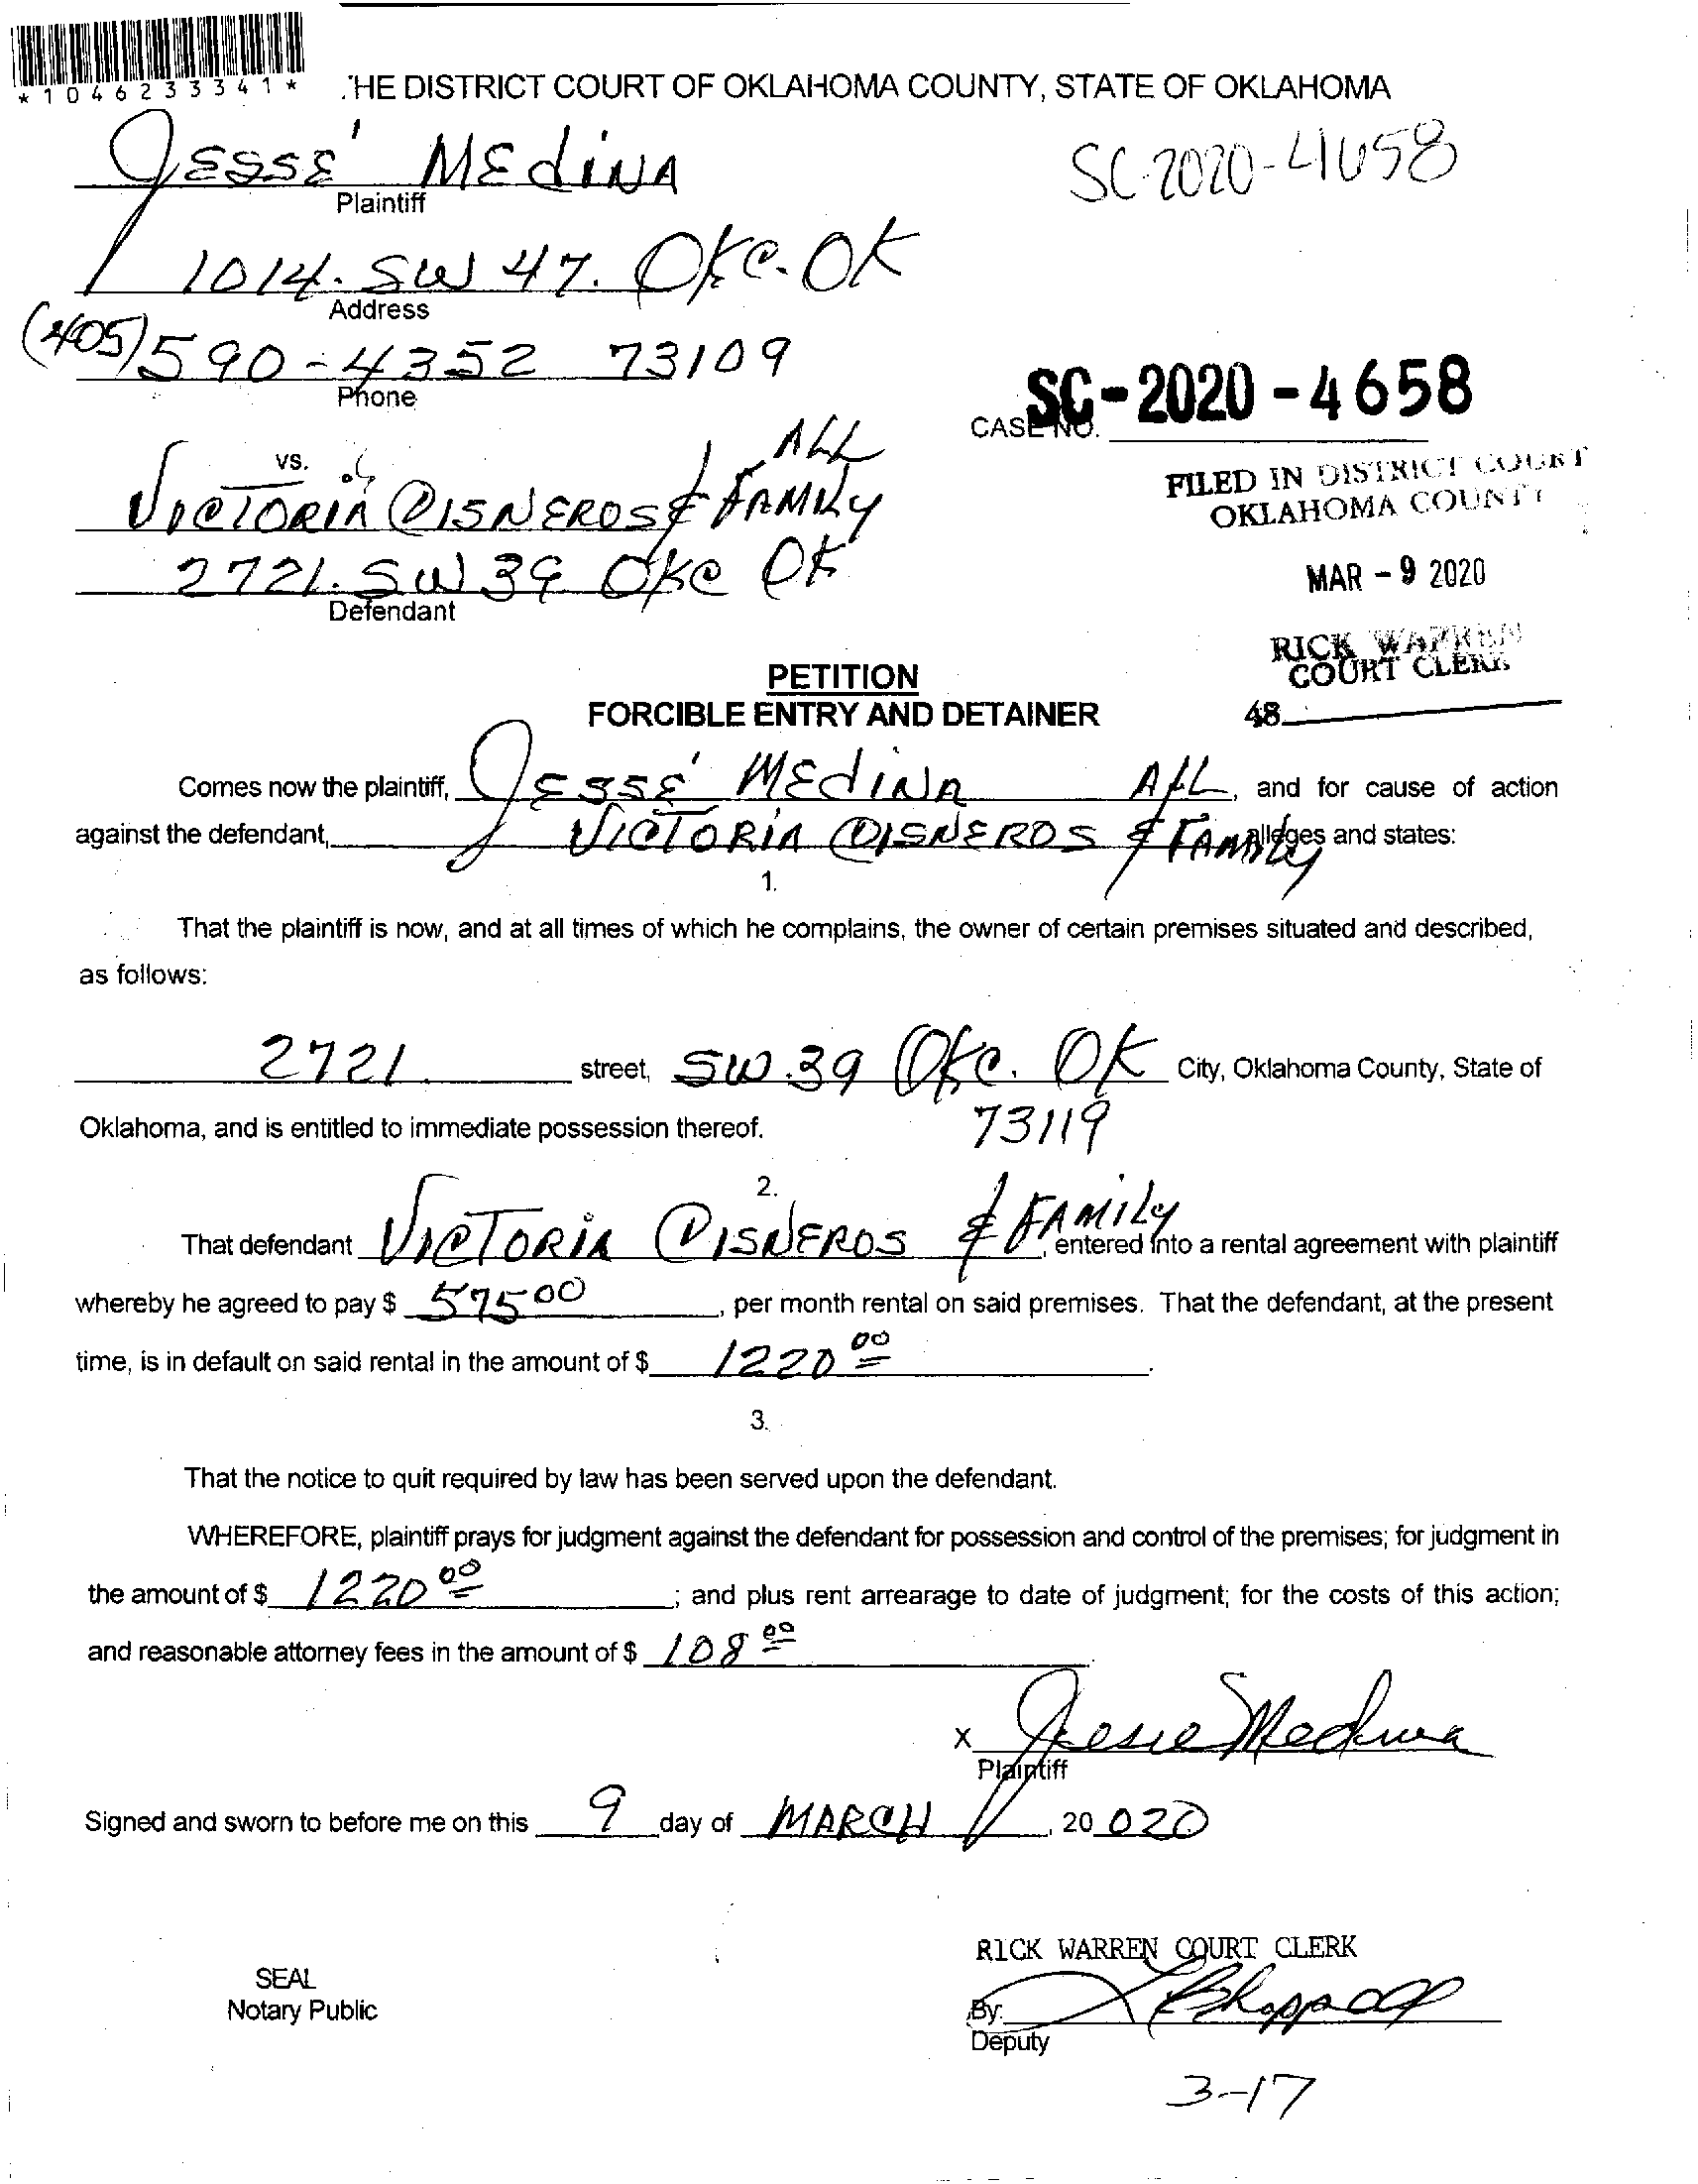 *1046233341*
THE DISTRICT COURT OF OKLAHOMA COUNTY, STATE OF OKLAHOMA
JESSE' MEdiNA
SC-2020-4658
Plaintiff
1014. SW 47. OKC. OK
Address
(405) 590-4352 73109
Phone
SC-2020-4658
CASE NO.
ALL
vs.
VICTORIA CISNEROS & FAMILY
FILED IN DISTRICT COURT
OKLAHOMA COUNTY
2721. SW 39 OKC OK
Defendant
MAR - 9 2020
RICK WARREN
COURT CLERK
48
PETITION
FORCIBLE ENTRY AND DETAINER
Comes now the plaintiff, JESSE' MEdiNA ALL, and for cause of action
against the defendant, VICTORIA CISNEROS & FAMILY alleges and states:
1.
That the plaintiff is now, and at all times of which he complains, the owner of certain premises situated and described,
as follows:
2721. street, SW. 39 OKC. OK City, Oklahoma County, State of
Oklahoma, and is entitled to immediate possession thereof. 73119
2.
That defendant VICTORIA CISNEROS & FAMILY, entered into a rental agreement with plaintiff
whereby he agreed to pay $ 575 00, per month rental on said premises. That the defendant, at the present
time, is in default on said rental in the amount of $ 1220 00.
3.
That the notice to quit required by law has been served upon the defendant.
WHEREFORE, plaintiff prays for judgment against the defendant for possession and control of the premises; for judgment in
the amount of $ 1220 00; and plus rent arrearage to date of judgment; for the costs of this action;
and reasonable attorney fees in the amount of $ 108 00.
x Jesse Medina
Plaintiff
Signed and sworn to before me on this 9 day of MARCH, 20 020
RICK WARREN COURT CLERK
SEAL
Notary Public
By:
Deputy
3-17